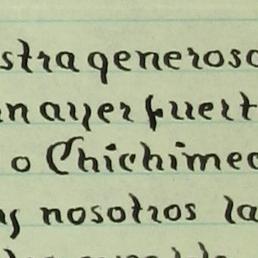 stra generoso
n ayer fuert
o Chichimec
s nosotros la